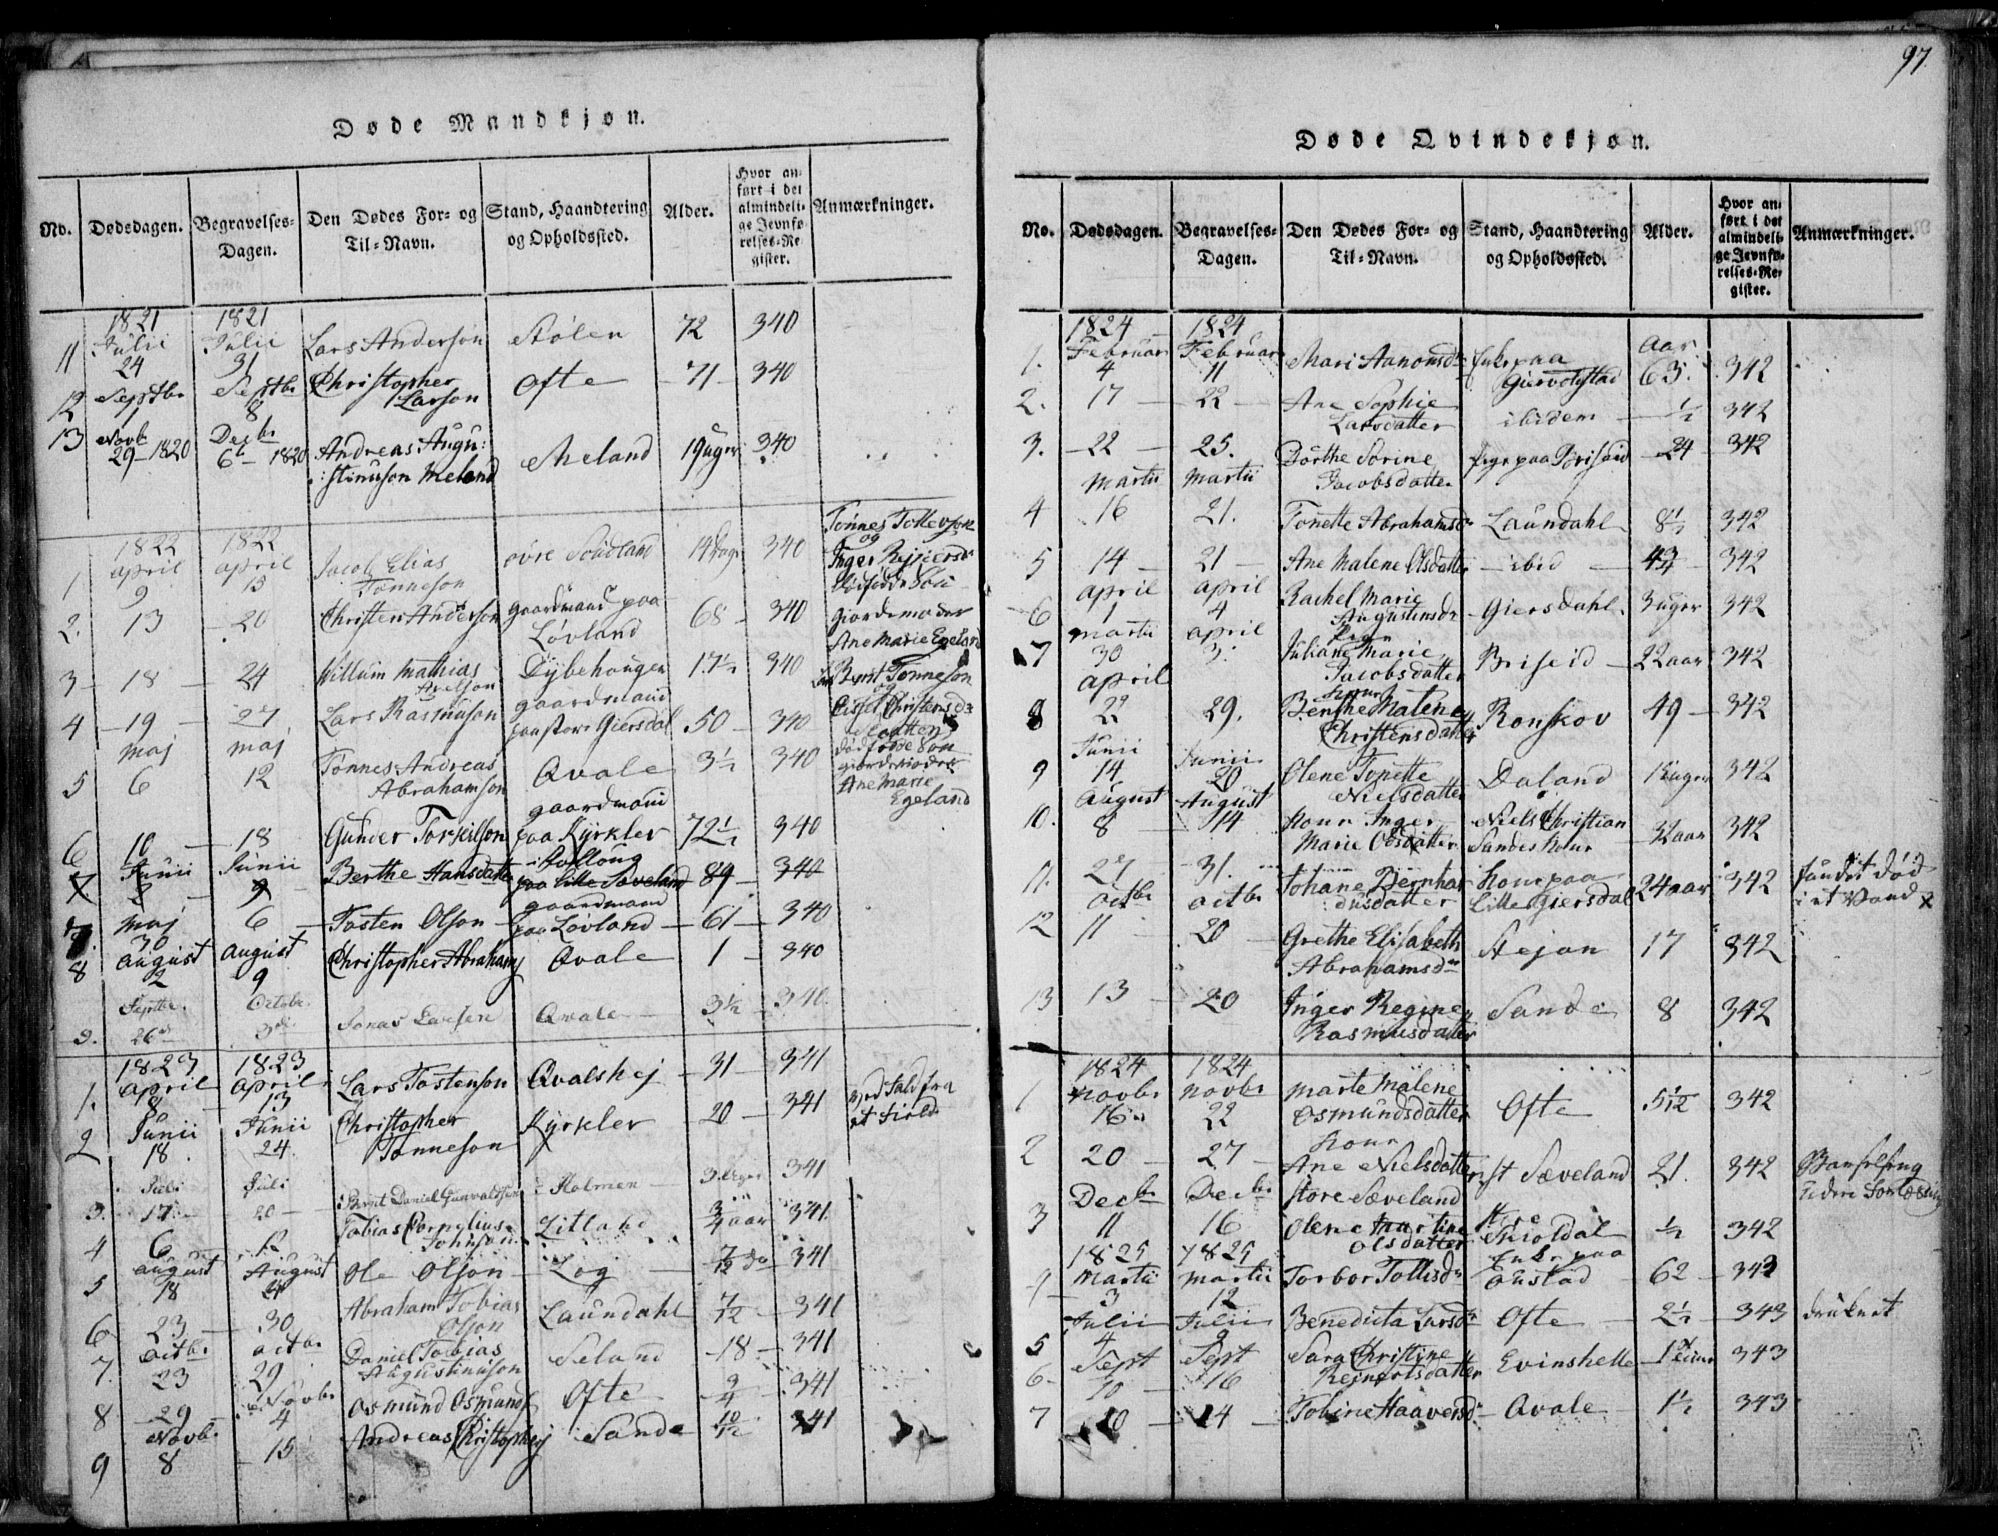 97
Døde Mandkjøn.
No. Dødsdagen. Begravelses-Dagen. Den Dødes For- og Til-Navn. Stand, Haandtering og Opholdssted. Alder. Hvor anført i det almindelige Jevnførelses-Register. Anmærkninger.
1821 1821
11 Julii 24 Julii 31 Lars Anderson Stølen 72 340
12 Septbr 1 Septbr 8 Christopher Larson Ofte 71 340
13 Novbr 29 1820 Decbr 6 1820 Andreas Augustinuson Meland Meland 19 uger 340
1822 1822
1 april 9 april 15 Jacob Elias Tønneson øvre Soudland 14 Dage 340 Tønnes Tollevson og Inger
2. 13 20 Christen Anderson gaardmand paa Løvland 68 340 giordemoder Ane Marie Egeland
3 18 24 Willum Mathias Axelson Dybehaugen 17½ 340 Tønneson og
4 19 27 Lars Rasmuson gaardmand paa store Giersdal 50 340 Christensdr
5 maj 6 maj 12 Tønnes Andreas Abrahamson Qvale 3½ 340 dødfødde Søn giordemoder Ane Marie Egeland
6 10 18 Gunder Torkilson gaardmand paa Kyrkler 72½ 340
7 Junii 2 Junii 9 Berthe Hansdatter paa lille Sæveland 89 340
7. maj 30 6 Tosten Olson gaardmand paa Løvland 61 340
8 august 2 august 9 Christopher Abrahams Qvale 1 340
9. Septbr. 26 Octobr. 3 Jonas Larsen Qvale 3½ 340.
1823 1823
1. april 8 april 13 Lars Tostenson Qvalshej 31 341
2 Junii 18 Junii 24 Christopher Tønneson Kyrkler 20 341 ved fald fra et field
3. Juli 17 Juli 20 Bernt Daniel Gunvaldsen Holmen 3 Uger 341
4 6 Tobias Cornelius Johnson Litland ¾ aar 341
5 august 18 August 24 Ole Olson Log 7/12 do 341
6 23 30 Abraham Tobias Olson Laundahl 7/12 341
7. octbr 23 octbr 29 Daniel Tobias Augustinuson Seland 18 341
8 29 Novbr 4 Osmund Osmunds Ofte 341
9 Novbr 8 15 Andreas Christophers Sande 10/12 341
Døde Qvindekjøn.
No. Dødsdagen. Begravelses-Dagen. Den Dødes For- og Til-Navn. Stand, Haandtering og Opholdssted. Alder. Hvor anført i det almindelige Jevnførelses-Register. Anmærkninger.
1824 1824
1. Februar 4 Februar 11 Mari Aanonsdr Enke paa Giervolstad aar 63. 342
2. 17 22 Ane Sophie Larsdatter ibidem ½ 342
3. 22 25. Dorthe Sorine Jacobsdatter pige paa Briseid 24 342
4 Martii 16 Martii 21. Tonette Abrahamsdr Laundahl 8½ 342
5 14 21 Ane Malene Olsdatter ibid 342
6 april 1 april 4 Rachel Marie Augustinsdr Giersdahl. 3 uger 342
7 martii 30 april 3. Pigen Juliane Marie Jacobsdatter Briseid 22 aar 342
8 april 22 29. Berthe Malene Christensdatter Ronskov 49 342
9 Junii 14 Junii 20 Olene Tonette Nielsdatter Daland uger 342
10. August 8 August 14 Konen Inger Marie Olsdatter Niels Christian Sandes Kone 32 aar 342
11. 27 31. Johane Bernhardusdatter Kone paa Lille Giersdal 24 aar 342 fundet død i et Vand
12 octbr 11 octbr 20 Grethe Elisabeth Abrahamsdr Stejan 17 342
13 13 20 Inger Regine Rasmusdatter Sande 8 342
1824 1824
1 novbr 16 novbr 22 Marte Malene Osmundsdatter Ofte 5/12 342
2 20 27 Kone Ane Nielsdatter store Sæveland st Sæveland 21. 342 Barselseng
3 Decbr 11 Decbr 16 Olene Martine Olsdatter Skoldal ½ 342
1825 1825
4 Martii 3 Martii 12 Torbor Tollisdr Enke paa Oustad 62 343
5 Julii 4 Julii 9 Benedicta Larsdr Ofte 2½ 343 druknet
6 Sept 10 Sept 16 Sara Christine Reinertsdatter Evinshelle 343
7 10 14 Tobine Haaversdr Qvale 1½ 343